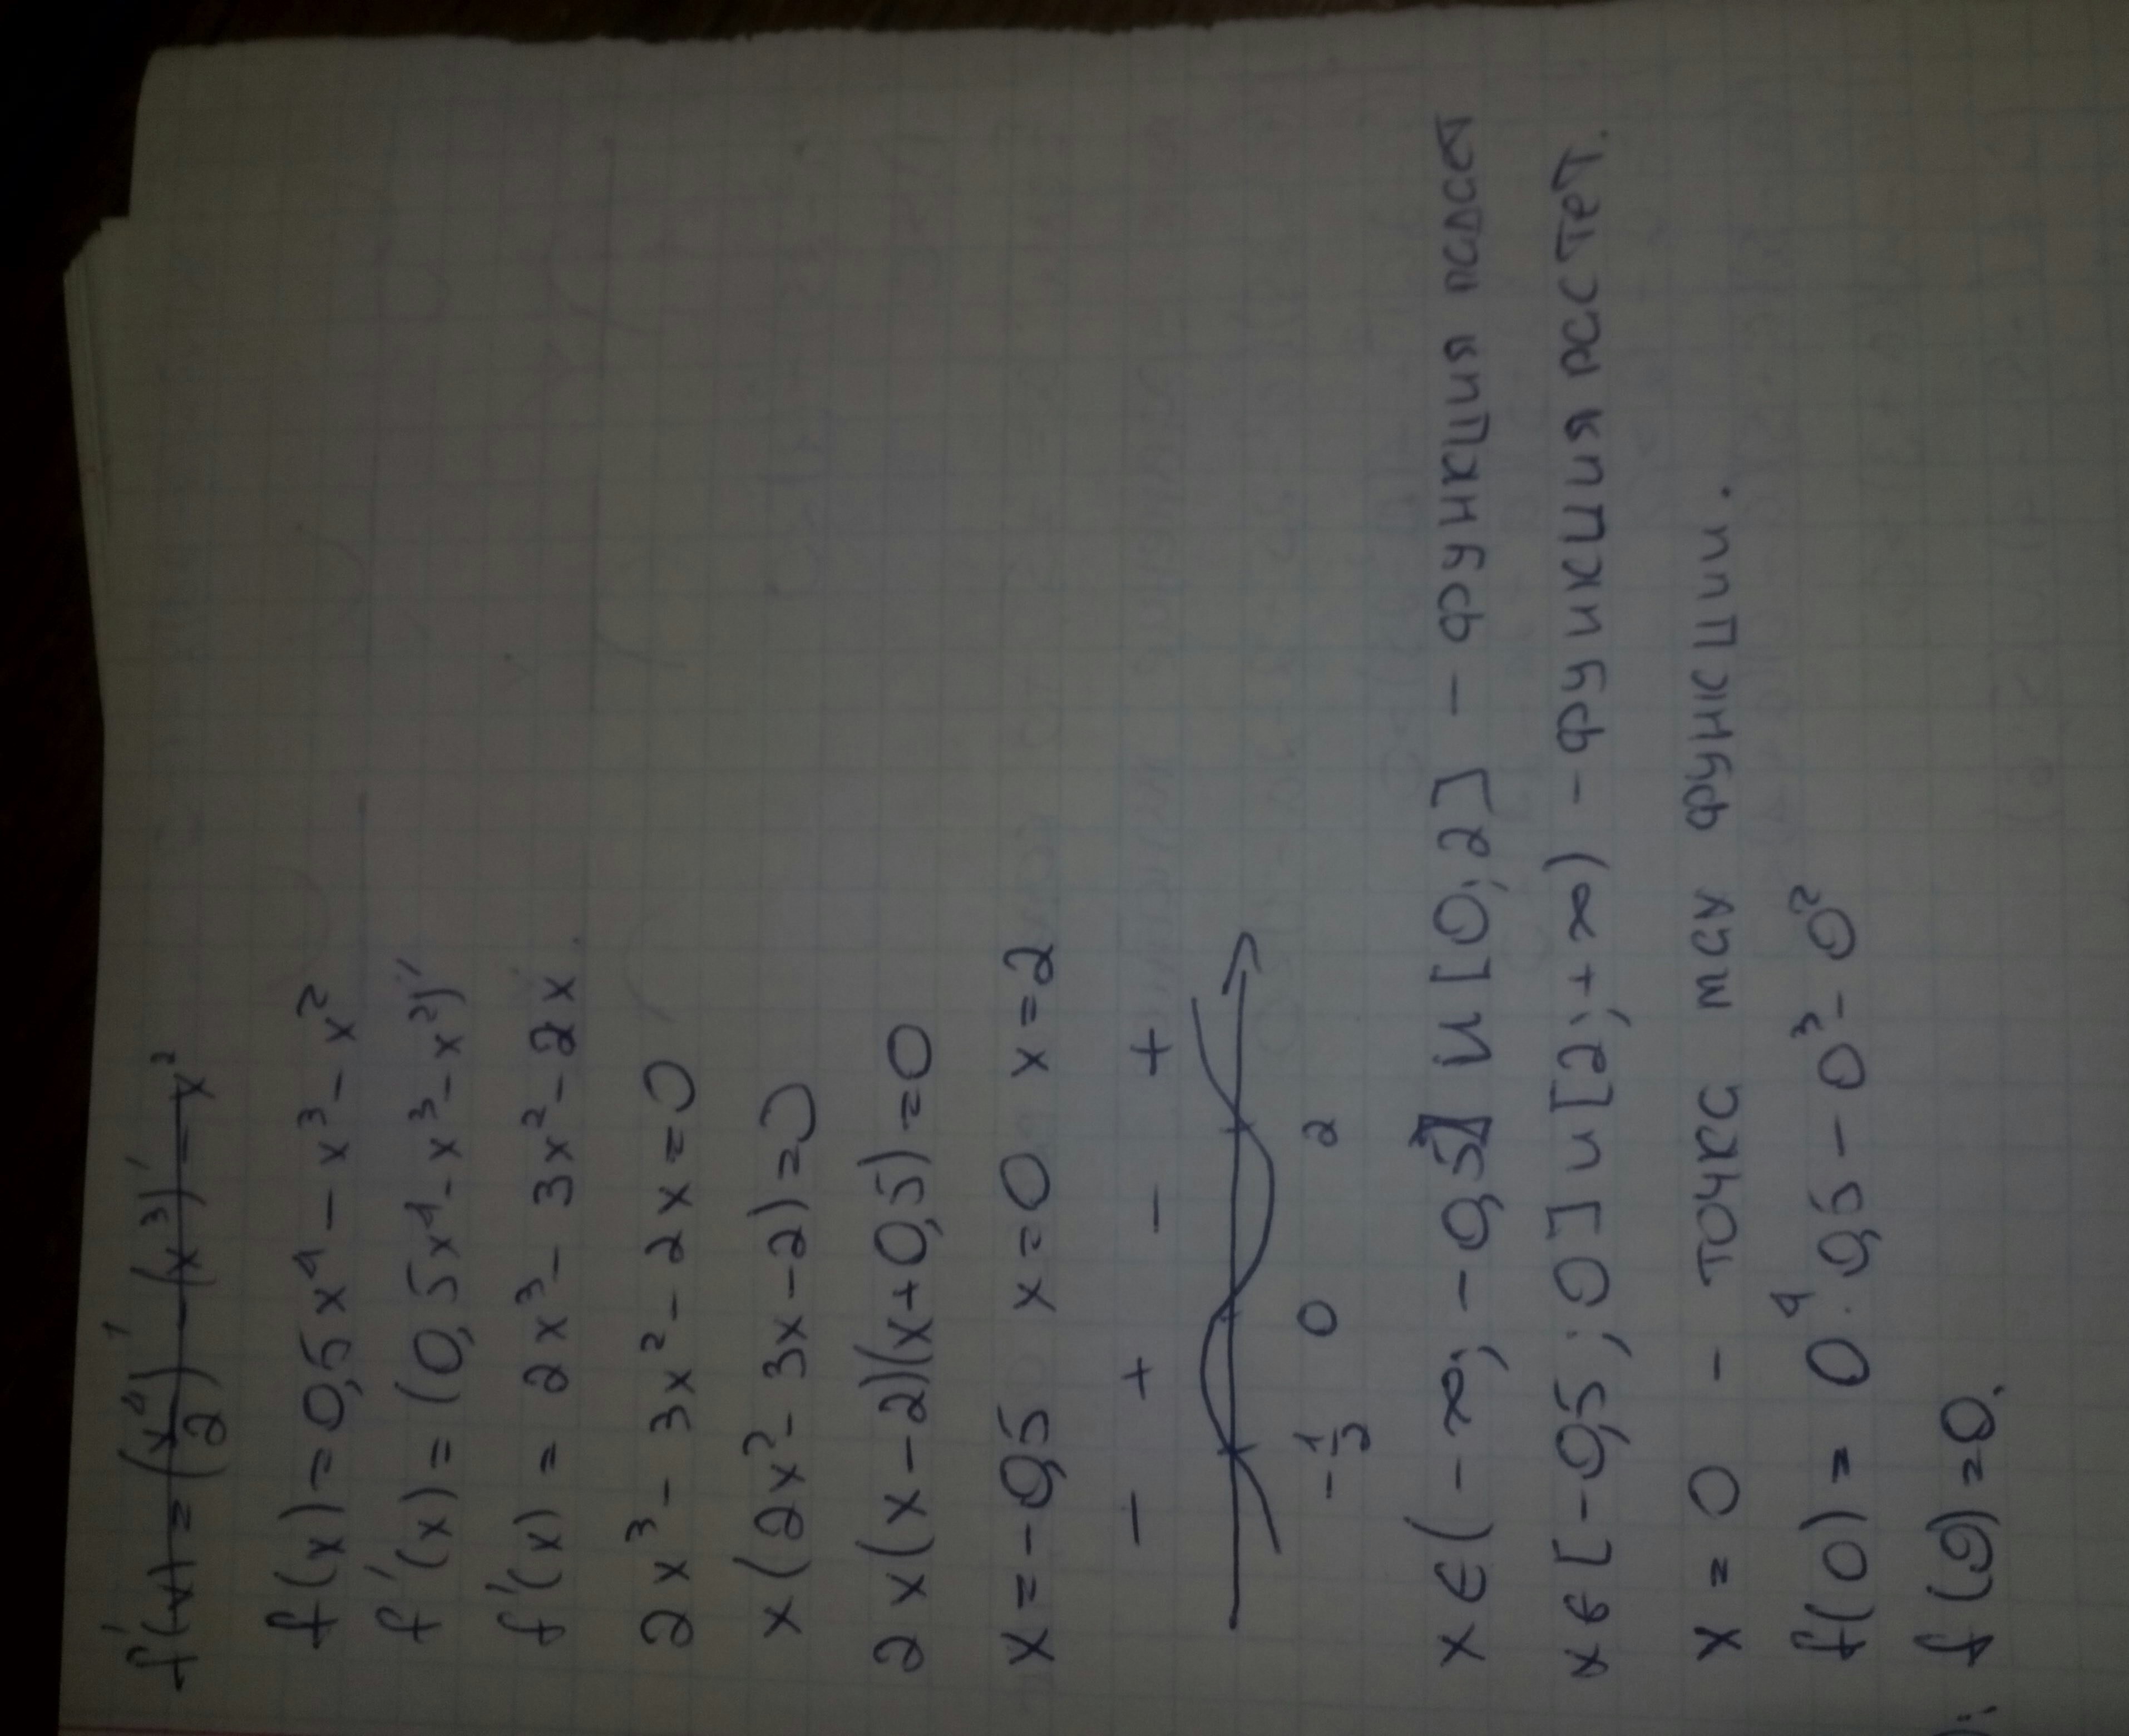 f'(x) = (x⁴/2)' - (x³)' - x²
f(x) = 0,5x⁴ - x³ - x²
f'(x) = (0,5x⁴ - x³ - x²)'
f'(x) = 2x³ - 3x² - 2x.
2x³ - 3x² - 2x = 0
x(2x² - 3x - 2) = 0
2x(x - 2)(x + 0,5) = 0
x = -0,5 x = 0 x = 2
- + - +
-1/2 0 2
x ∈ (-∞; -0,5] и [0; 2] - функция падает
x ∈ [-0,5; 0] и [2; +∞) - функция растет.
x = 0 - точка max функции.
f(0) = 0⁴ · 0,5 - 0³ - 0²
): f(0) = 0.